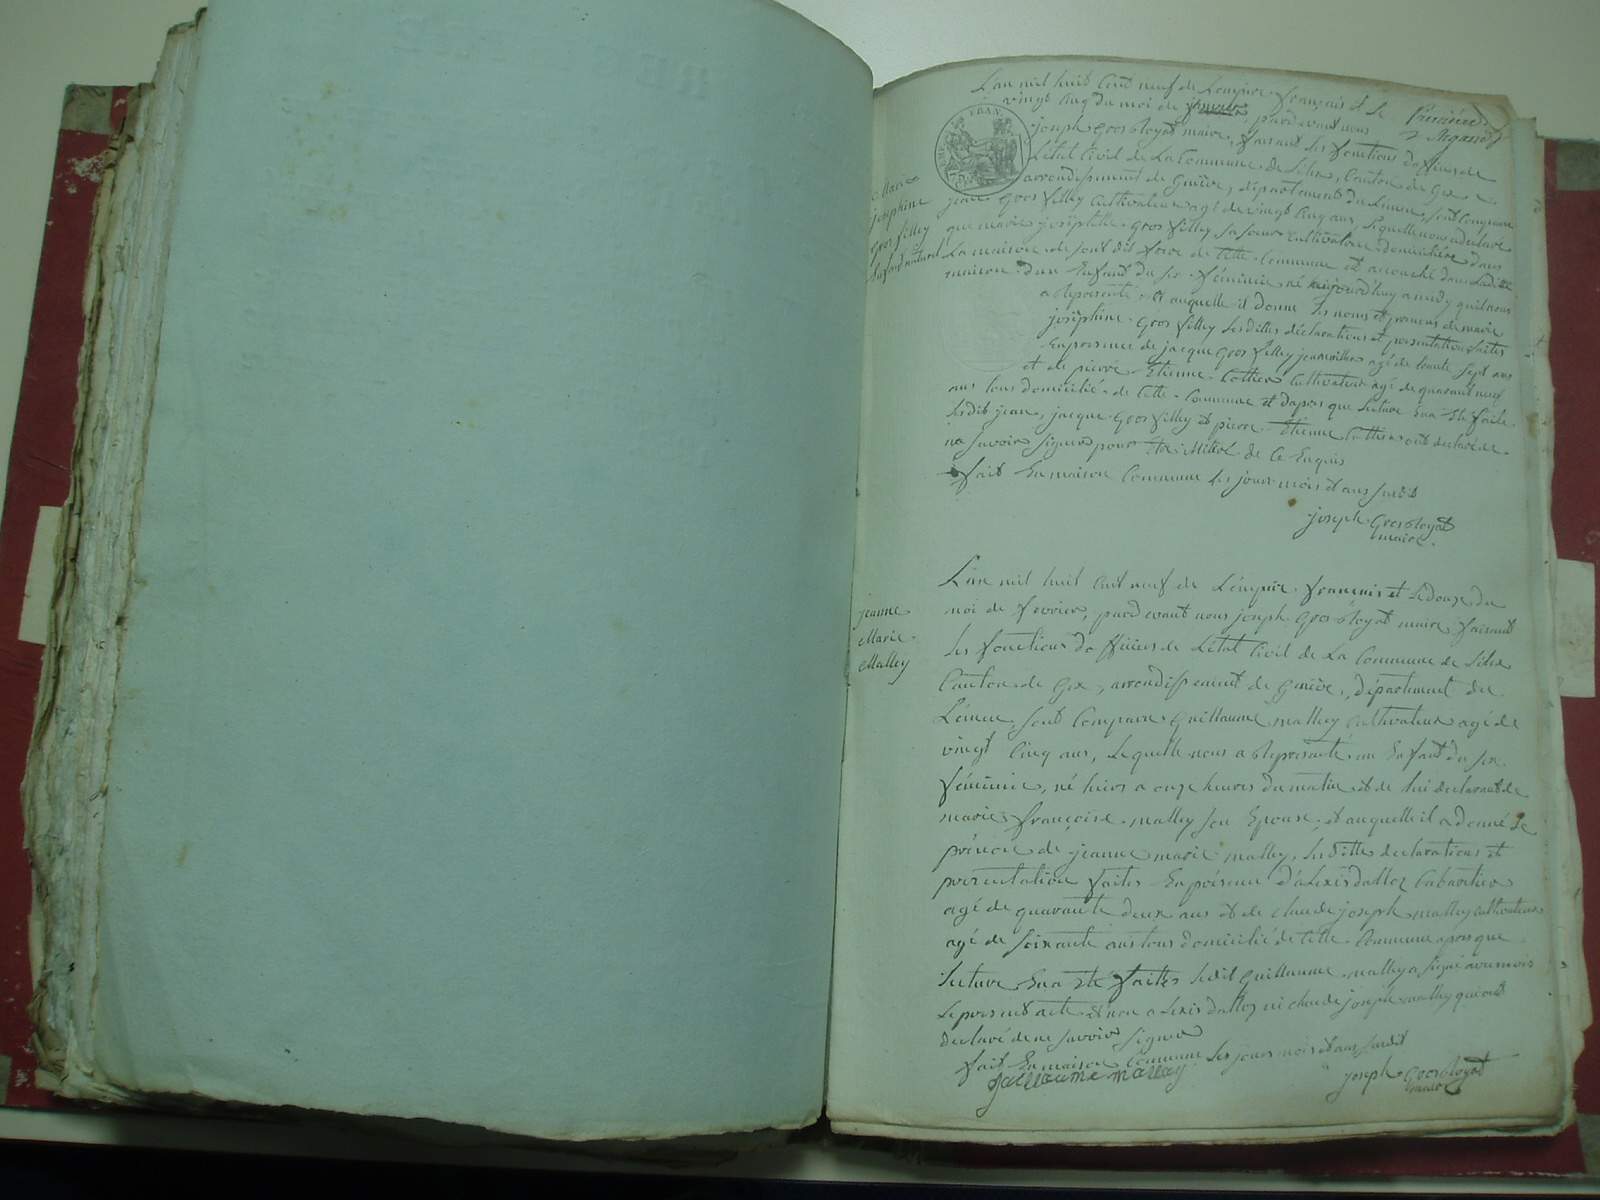 L'an mil huit Cent neuf de L'empire français et le
vingt Cinq du moi de janvier, pardevant nous
joseph Grosbloyat maire, faisant Les fonctions d'officier de
L'état Civil de La Commune de Lélex, Canton de Gex
arrondissement de Genève, département du Léman, sont Comparu
jean Gros filley Cultivateur agé de vingt Cinq ans Lequelle nous a declaré
que marie josephte Gros filley sa soeur Cultivatrice domiciliére dans
La maison de sont dit frere de Cette Commune et accouché dans Laditte
maison d'un Enfant du sex féminin né aujourd'huy a midy quil nous
a Représenté, et auquelle il donne Les noms et prenoms de marie
joséphine Gros filley Lesdittes déclarations et présentation faites
En présence de jacque Gros filley agé de trente sept ans
et de pierre Etienne Cultivateur agé de quarante neuf
ans tous domicilié de Cette Commune et d'après que Lecture En a Eté faite
Lesdits jean, jacque Gros filley et pierre Etienne ont declaré de
ne savoir signer pour de Ce Enquis
fait En maison Commune Les jour mois et ans susdit
joseph Grosbloyat
maire
Marie
josephine
Gros filley
Enfant naturel
L'an mil huit Cent neuf de L'émpire français et Ledouze du
moi de fevrier, pardevant nous joseph Grosbloyat maire faisant
Les fonctions d'officier de L'état Civil de La Commune de Lélex
Canton de Gex, arrondissement de Genève, département du
Léman, sont Comparu Guillaume malley Cultivateur agé de
vingt Cinq ans, Lequelle nous a Représenté un Enfant du sex
féminin, né hier a onze heures du matin et de lui declarant de
marie françoise malley son Epouse, et auquelle il a donné Le
prénom de jeanne marie malley, Lesdittes declarations et
presentation faites En présence d'alexis dalloz Cabaretier
agé de quarante deux ans et de claude joseph malley Cultivateur
agé de soixante ans tous domicilié de Cette Commune après que
Lecture En a Eté faittes Ledit Guillaume malley a signé avec nous
Le present acte et non alexis dalloz ni claude joseph malley qui ont
declaré de ne savoir signer
fait En maison Commune Les jours mois et ans susdit
Guillaume Malley
joseph Grosbloyat
maire
jeanne
Marie
Malley